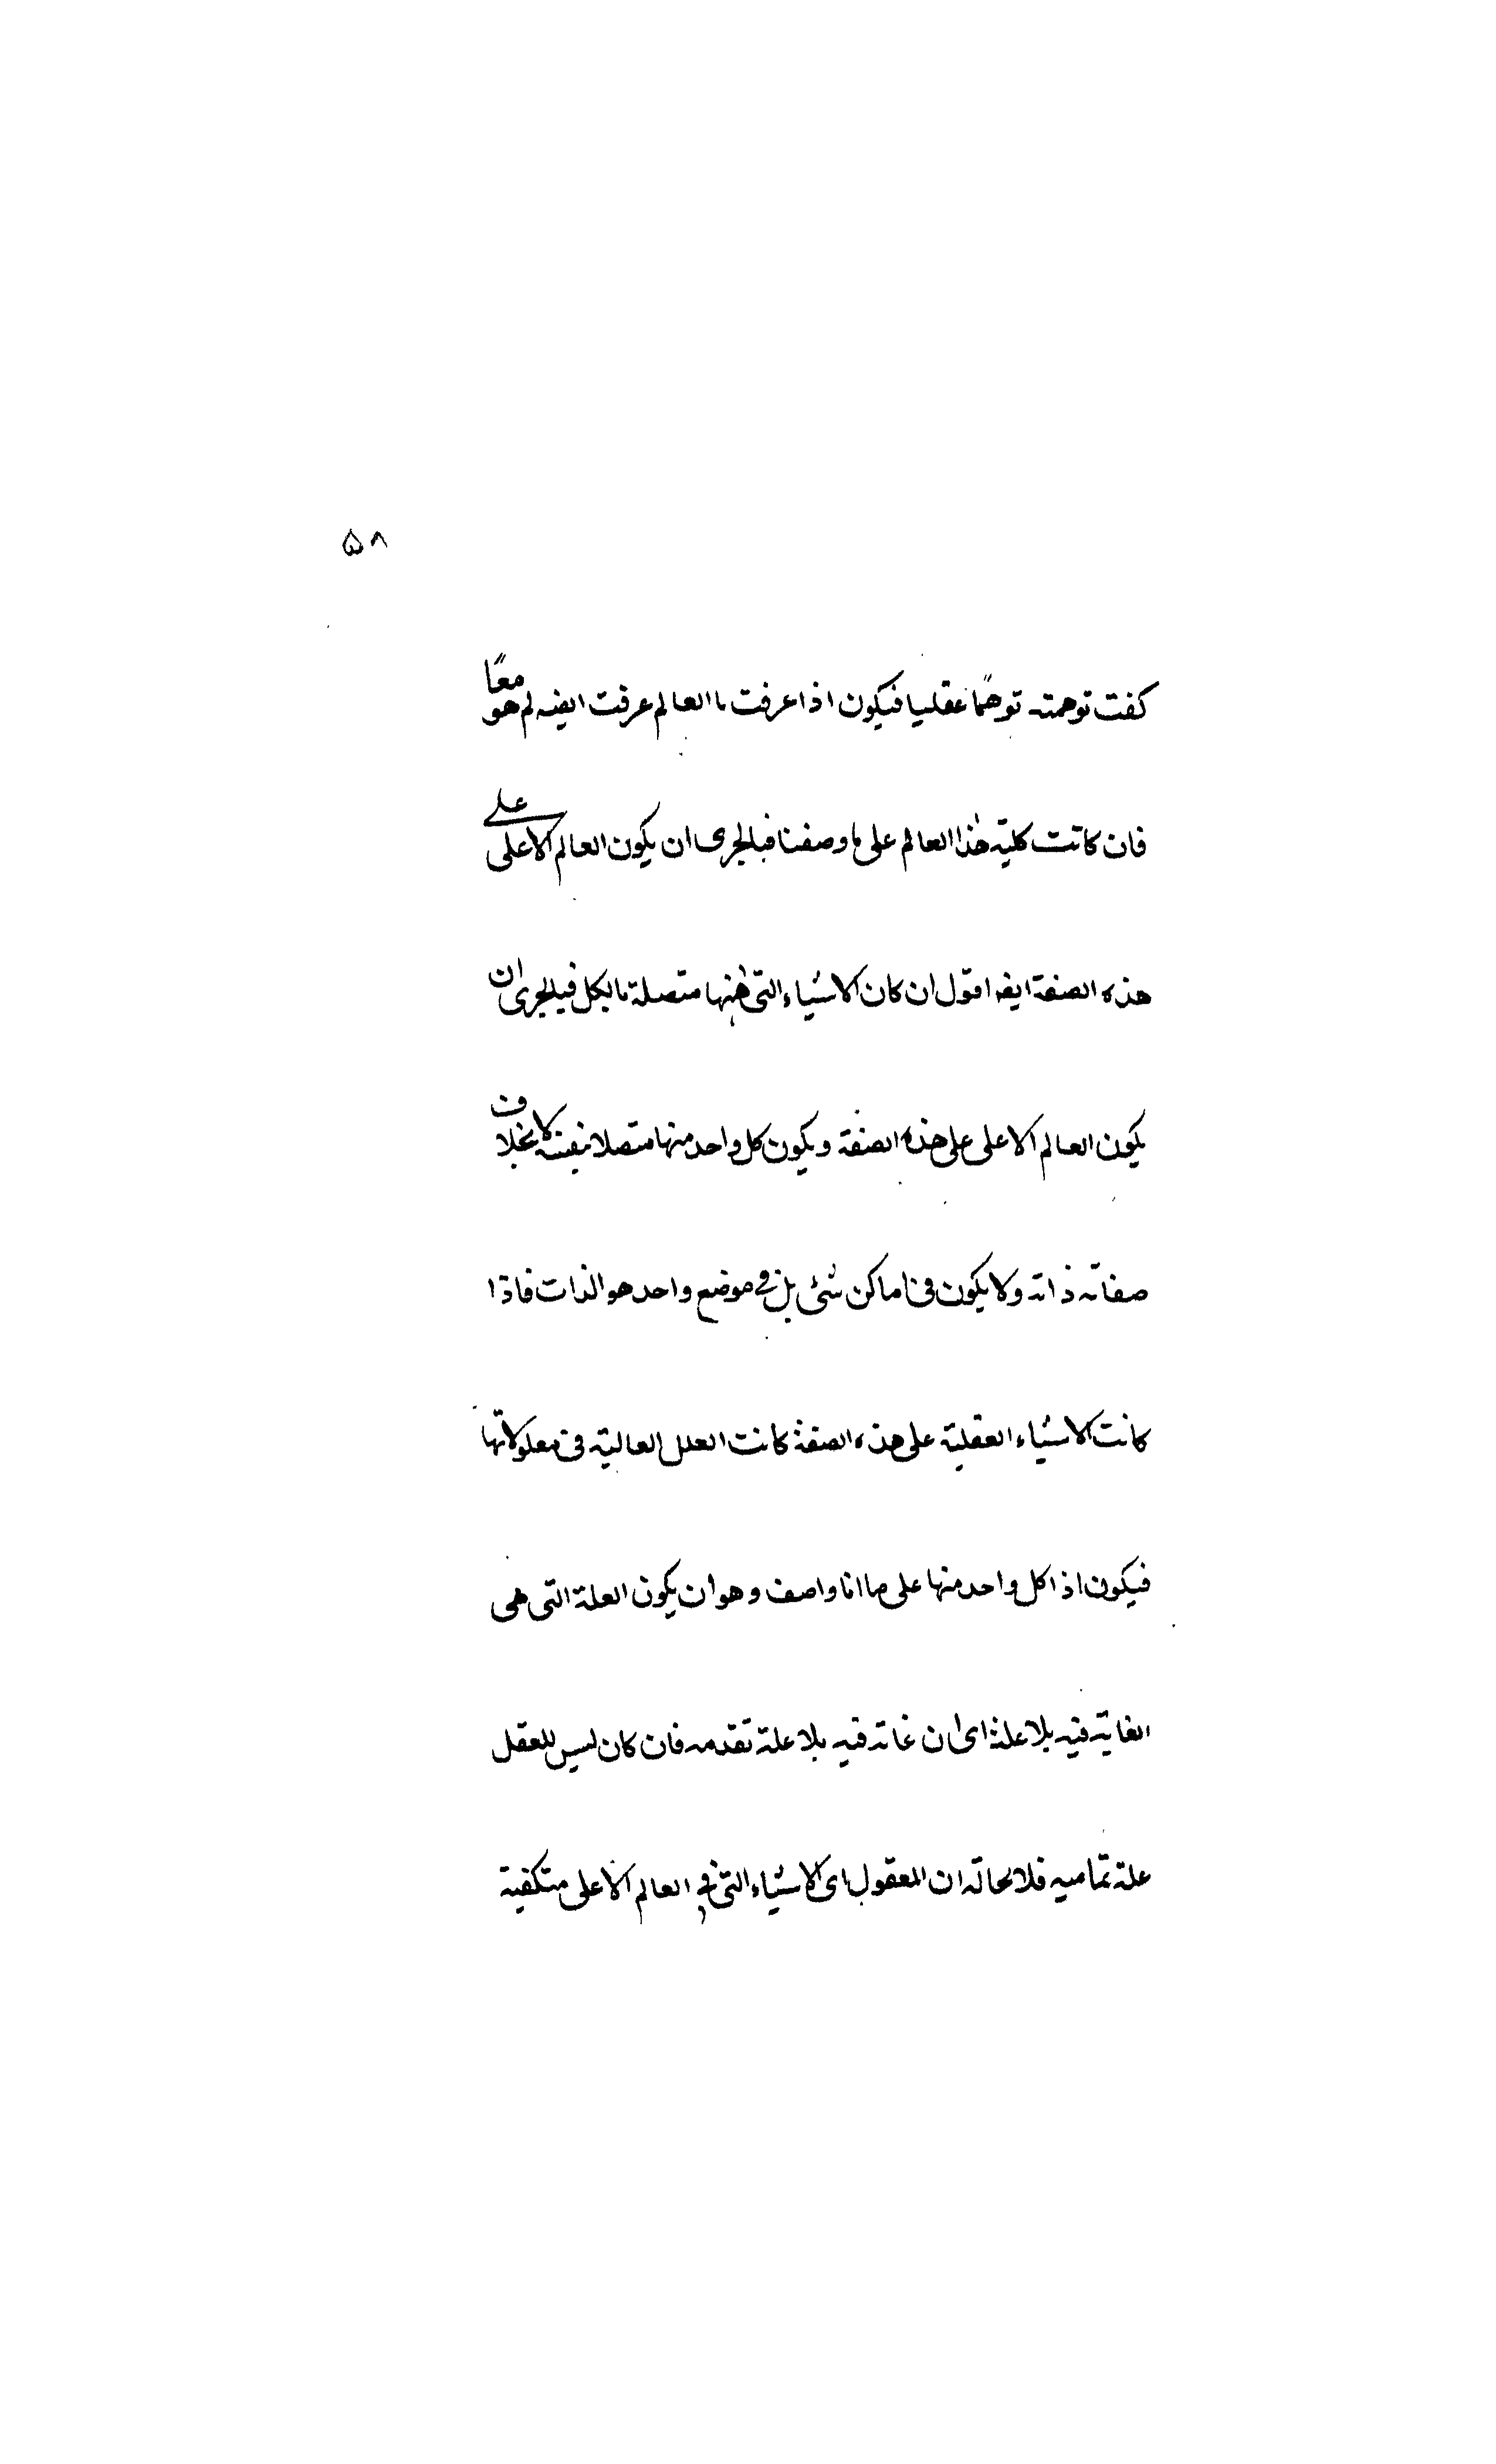 ۵۸
كنت توهمته توهمًا عقليا فيكون اذا عرفت ما العالم عرفت ايضه لم هو معًا
فان كانت كلية هذا العالم على ما وصفنا فبالحرى ان يكون العالم الاعلى على
هذه الصفة ايضه اقول ان كان الاشياء التى ههنا متصلة بالكل فبالحرى ان
يكون العالم الاعلى على هذه الصفة ويكون كل واحد منها متصلا بنفسه لا بخلاف
صفاته ذاته ولا يكون فى اماكن شئ بل فى موضع واحد هو الذات فاذا
كانت الاشياء العقلية على هذه الصفة كانت العلل العالية فى معلولاتها
فيكون اذا كل واحد منها على ما انا واصف وهو ان يكون العلة التى هى
الغاية فيه بلا علة اى ان غاته فيه بلا علة تقدمه فان كان ليس للعقل
علة تمامية فلا محالة ان المعقول اى الاشياء التى فى العالم الاعلى متكفية